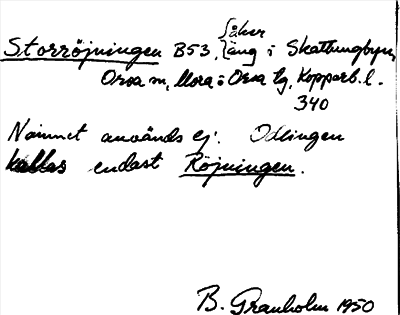 Storröjningen B53, {åker
{äng i Skattungbyn,
Orsa sn, Mora o Orsa tg, Kopparb. l.
340
Namnet används ej. Odlingen
kallas endast Röjningen.
B. Granholm 1950